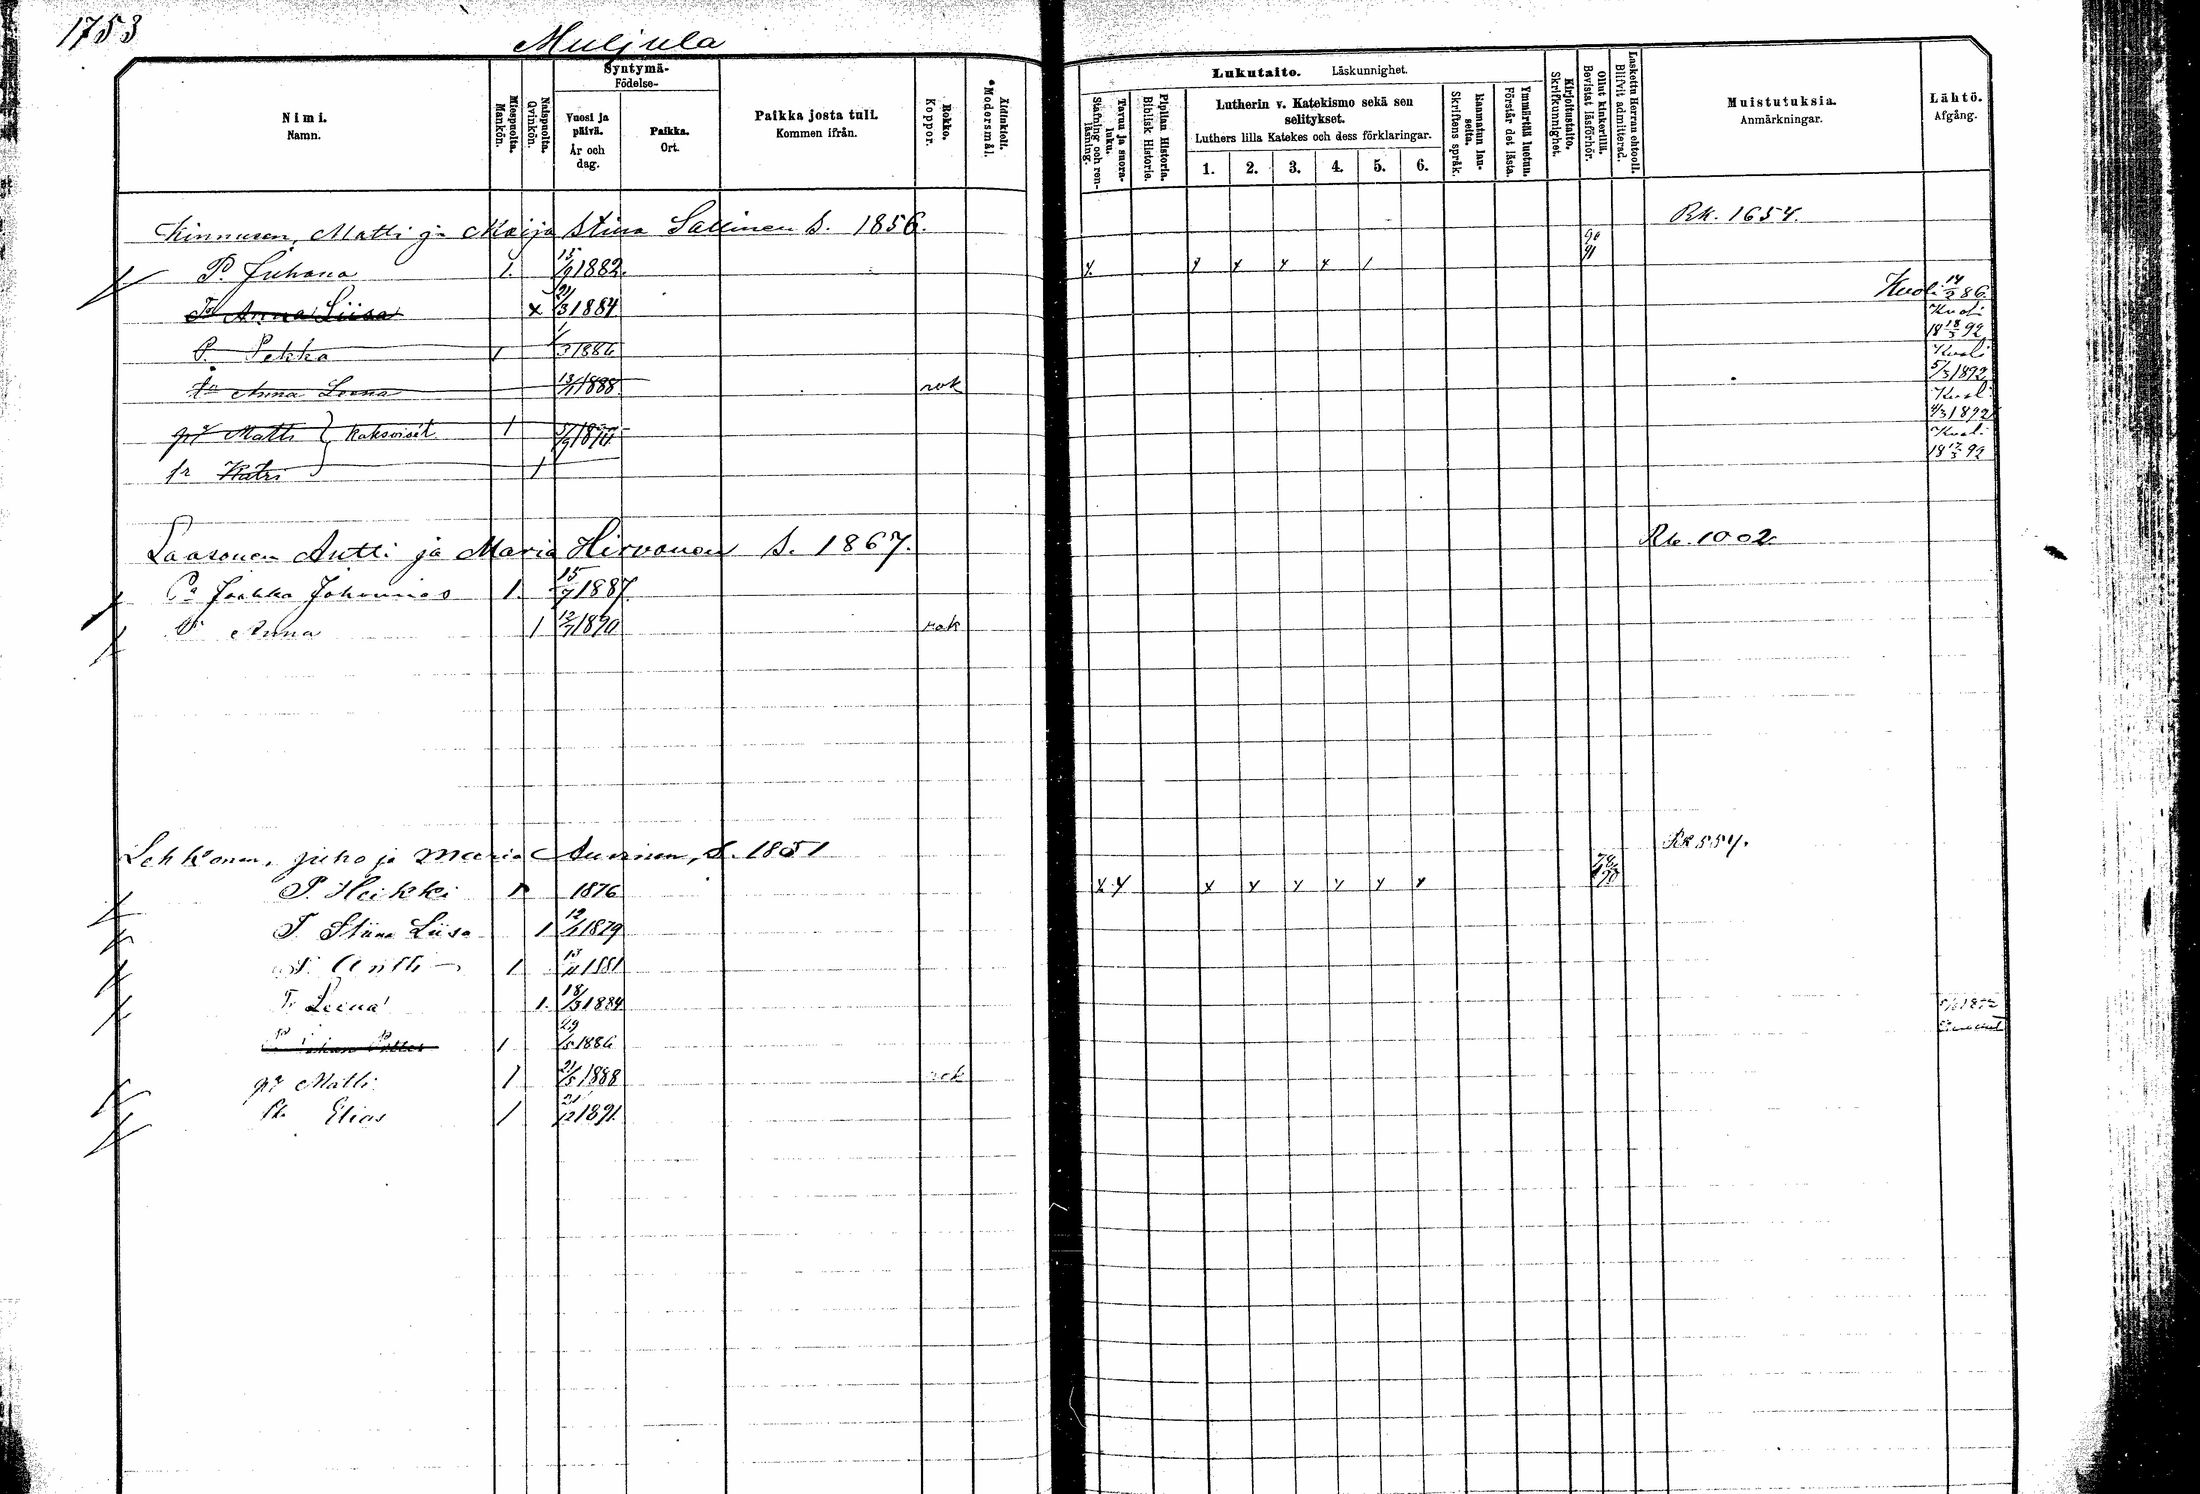 1753
Muljula
Nimi.
Namn.
Miespuolta.
Mankön.
Naispuolta.
Qvinkön.
Syntymä-
Födelse-
Vuosi ja päivä.
År och dag.
Paikka.
Ort.
Paikka josta tuli.
Kommen ifrån.
Rokko.
Koppor.
Äitinkieli.
Modersmål.
Lukutaito. Läskunnighet.
Tavuu ja suora-luku.
Stafning och ren-läsning.
Piplian Historia.
Biblisk Historie.
Lutherin v. Katekismo sekä sen selitykset.
Luthers lilla Katekes och dess förklaringar.
1. 2. 3. 4. 5. 6.
Raamatun lau-seita.
Skriftens språk.
Ymmärtää luetun.
Förstår det lästa.
Kirjoitustaito.
Skrifkunnighet.
Ollut kinkerillä.
Bevistat läsförhör.
Laskettu Herran ehtooll.
Blifvit admitterad.
Muistutuksia.
Anmärkningar.
Lähtö.
Afgång.
Kinnusen, Matti ja Maija Stina Sallinen S. 1856. Rk. 1654.
P. Juhana 1. 15/9 1882. 90 91
Tr Anna Liisa x 21/3 1884 Kuoli 14/2 86.
P. Pekka 1 1/3 1886 Kuoli 18 18/3 92
tr Anna Leena 13/11 1888. rok Kuoli 5/3 1892
pr Matti } kaksoiset 1 Kuoli 4/3 1892
tr Katri 1 Kuoli 18 17/3 92
Laasonen Antti ja Maria Hirvonen S. 1867. Rk. 1002.
Pa Jaakko Johannes 1. 15/7 1887.
Anna 1 12/7 1890 rok
Lehkonen, Juho ja Maria Auvinen, S. 1851 Rk 557.
P. Heikki 1 1876
T. Stiina Liisa 1 12/1 1879
P. Antti 1 13/11 1881
Tr Leena 1. 18/3 1884
1 29/5 1886
pr Matti 1 21/5 1888 rok
Elias 1 21/12 1891.